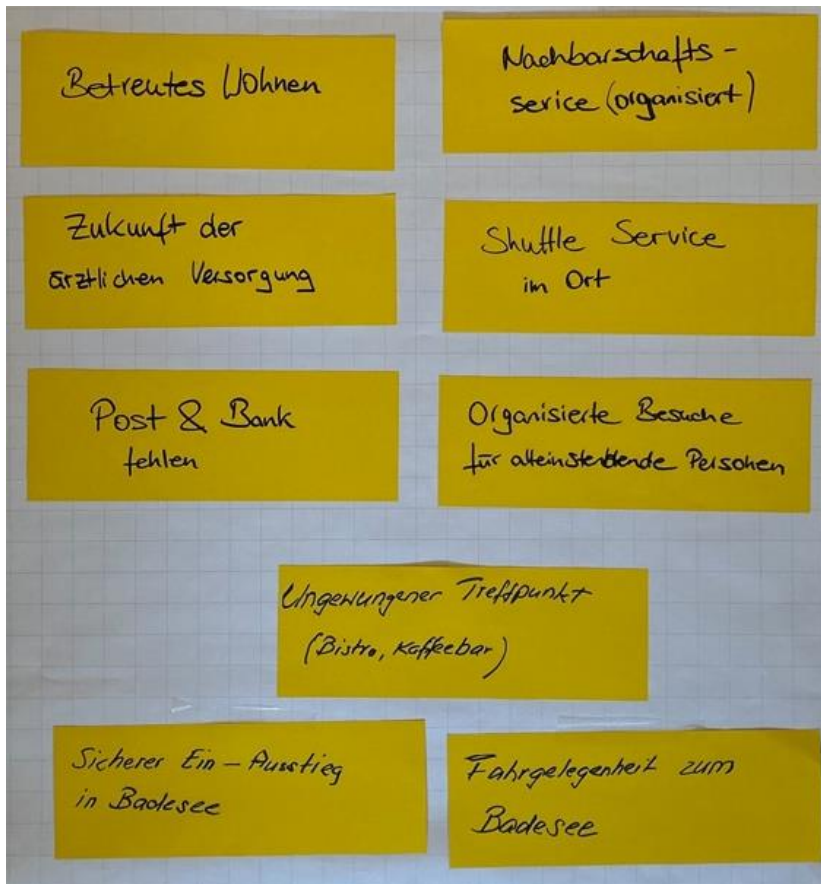 Betreutes Wohnen
Nachbarschafts-
serice (organisiert)
Zukunft der
ärztlichen Versorgung
Shuttle Service
im Ort
Post & Bank
fehlen
Organisierte Besuche
für alleinstehende Personen
Ungewungener Treffpunkt
(Bistro, Kaffeebar)
Sicherer Ein - Ausstieg
in Badesee
Fahrgelegenheit zum
Badesee